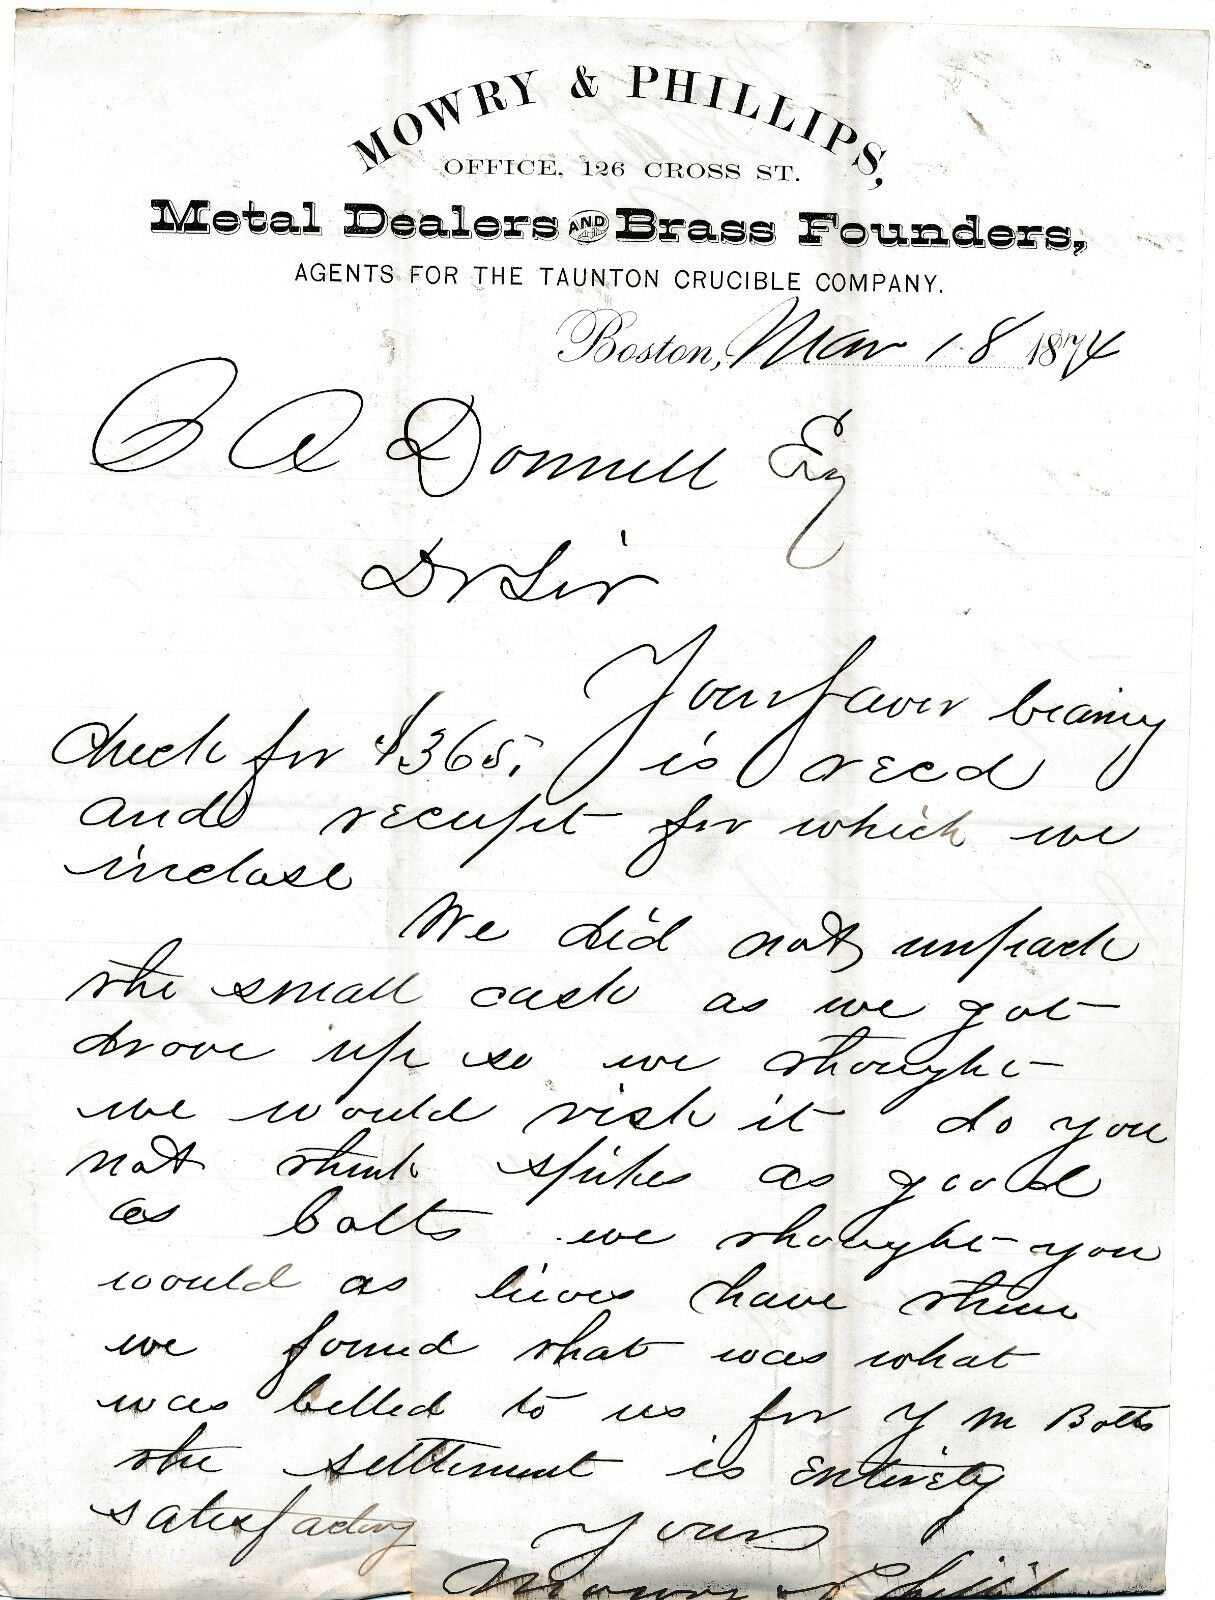 MOWRY & PHILLIPS,
OFFICE, 126 CROSS ST.
Metal Dealers AND Brass Founders,
AGENTS FOR THE TAUNTON CRUCIBLE COMPANY.
Boston, Mar 18 1874
Donnell Esq
Dr Sir
Your favor bearing
check for $365. is recd
and receipt for which we
inclose
We did not unpack
the small cask as we got
drove up so we thought
we would risk it do you
not think spikes as good
as bolts we thought you
would as lieves have them
we found that was what
was billed to us for Y M Bolts
the settlement is entirely
satisfactory
Yours
Mowry & Phillips